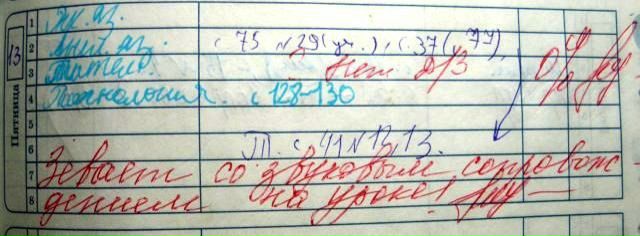 13
Пятница
1 Як. яз.
2 Англ. яз. с 75 №29(уч.), с.37(
3 Матем. Нет Д/З
4 Технология. с 128-130
5
6 Т. с 41 №12,13.
7 Зевает со звуковым сопровож
8 дением на уроке!